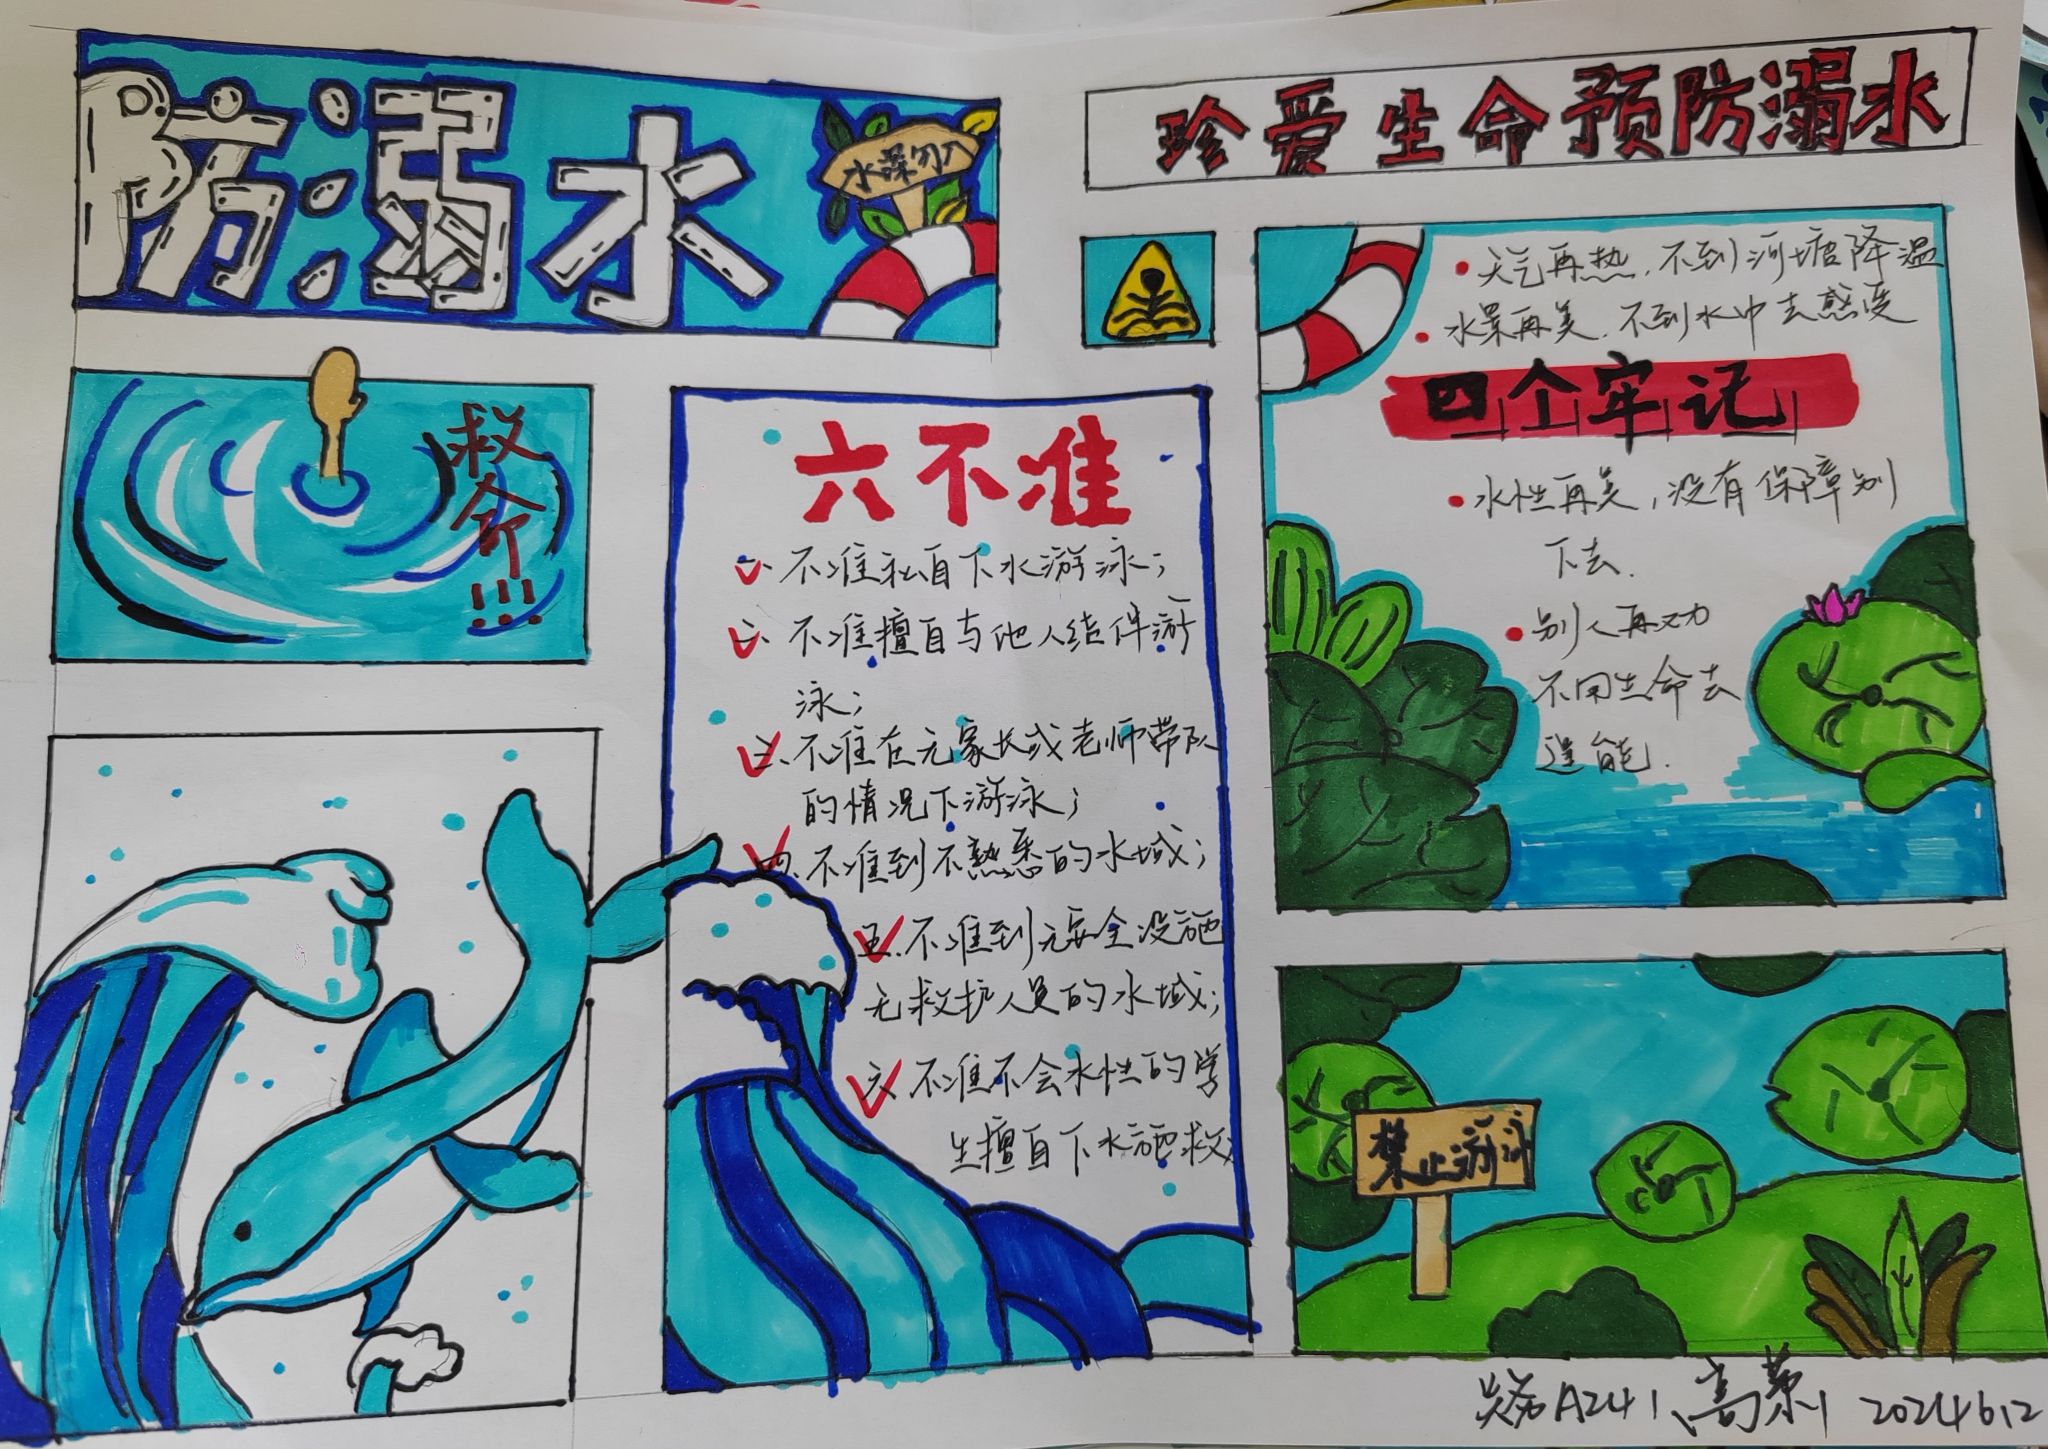 防溺水
水深勿入
珍爱生命预防溺水
救命!!!
六不准
一、不准私自下水游泳；
二、不准擅自与他人结伴游
泳；
三、不准在无家长或老师带队
的情况下游泳；
四、不准到不熟悉的水域；
五、不准到无安全设施
无救护人员的水域；
六、不准不会水性的学
生擅自下水施救；
天气再热,不到河塘降温
水景再美,不到水中去感受
四个牢记
水性再美,没有保障别
下去.
别人再劝
不用生命去
逞能.
禁止游泳
A241 高 2024.6.12